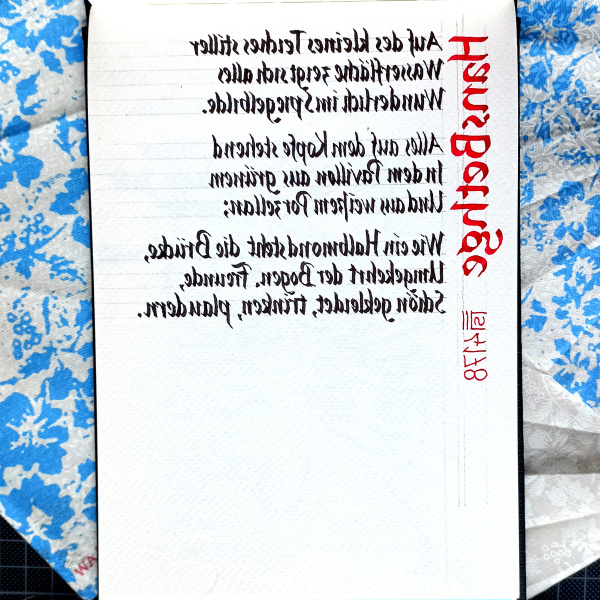 Auf des kleines Teiches stiller
Wasserfläche zeigt sich alles
Wunderlich im Spiegelbilde.
Alles auf dem Kopfe stehend
In dem Pavillon aus grünem
Und aus weißem Porzellan;
Wie ein Halbmond steht die Brücke,
Umgekehrt der Bogen. Freunde,
Schön gekleidet, trinken, plaudern.
Hans Bethge